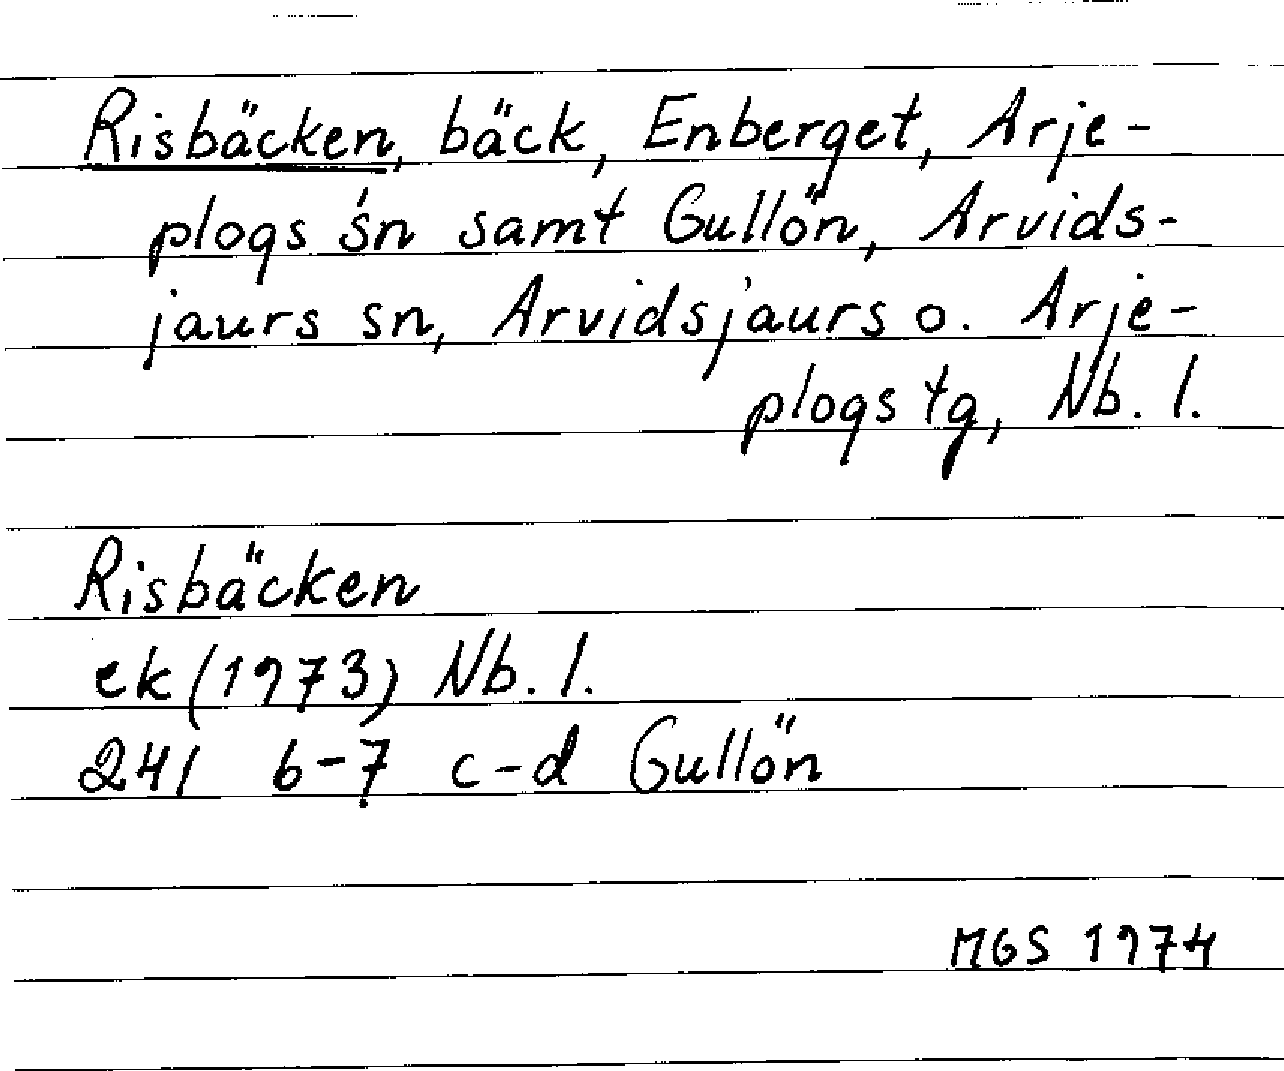 Risbäcken, bäck, Enberget, Arje-
plogs sn samt Gullön, Arvids-
jaurs sn, Arvidsjaurs o. Arje-
plogs tg, Nb. l.
Risbäcken
ek (1973) Nb. l.
241 6-7 c-d Gullön
MGS 1974